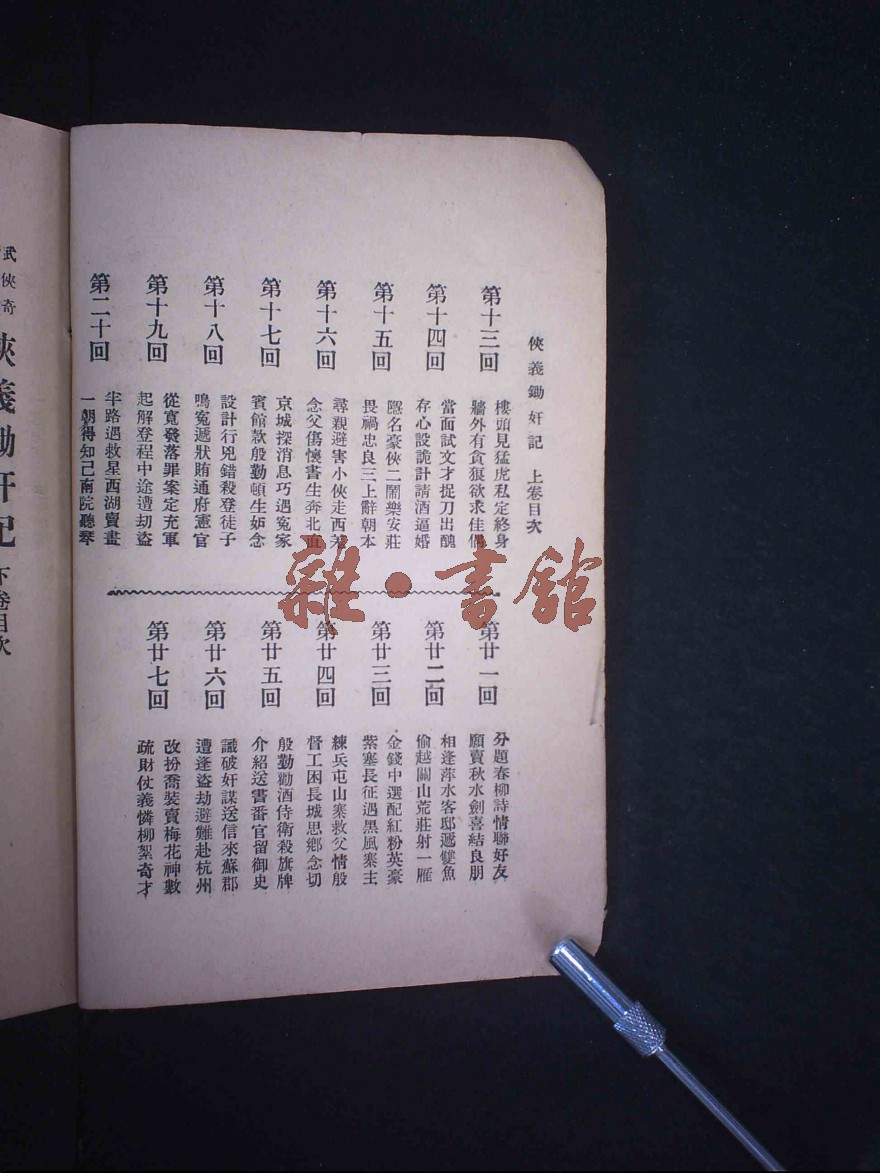 俠義鋤奸記 上卷目次
第十三回
樓頭見猛虎私定終身
牆外有貪狼欲求佳偶
第十四回
當面試文才捉刀出醜
存心設詭計請酒逼婚
第十五回
隱名豪俠二鬧樂安莊
畏禍忠良三上辭朝本
第十六回
尋親避害小俠走西羌
念父傷懷書生奔北直
第十七回
京城探消息巧遇冤家
賓館款殷勤頓生妬念
第十八回
設計行兇錯殺登徒子
鳴冤遞狀賄通府憲官
第十九回
從寬發落罪案定充軍
起解登程中途遭劫盜
第二十回
半路遇救星西湖賣畫
一朝得知己南院聽琴
第廿一回
分題春柳詩情聯好友
願賣秋水劍喜結良朋
第廿二回
相逢萍水客邸遞雙魚
偷越關山荒莊射一雁
第廿三回
金錢中選配紅粉英豪
紫塞長征遇黑風寨主
第廿四回
練兵屯山寨救父情殷
督工困長城思鄉念切
第廿五回
殷勤勸酒侍衛殺旗牌
介紹送書番官留御史
第廿六回
識破奸謀送信來蘇郡
遭逢盜劫避難赴杭州
第廿七回
改扮喬裝賣梅花神數
疏財仗義憐柳絮奇才
武俠奇
俠義鋤奸記 下卷目次
雜·書館